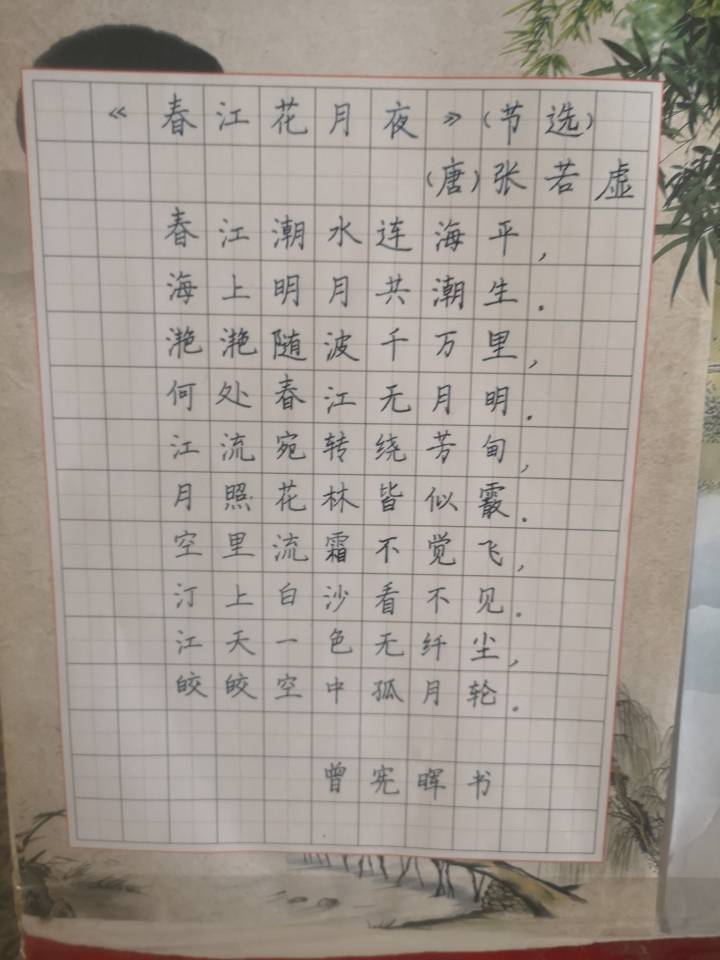 《春江花月夜》(节选)
(唐)张若虚
春江潮水连海平,
海上明月共潮生.
滟滟随波千万里,
何处春江无月明.
江流宛转绕芳甸,
月照花林皆似霰.
空里流霜不觉飞,
汀上白沙看不见.
江天一色无纤尘,
皎皎空中孤月轮.
曾宪晖书